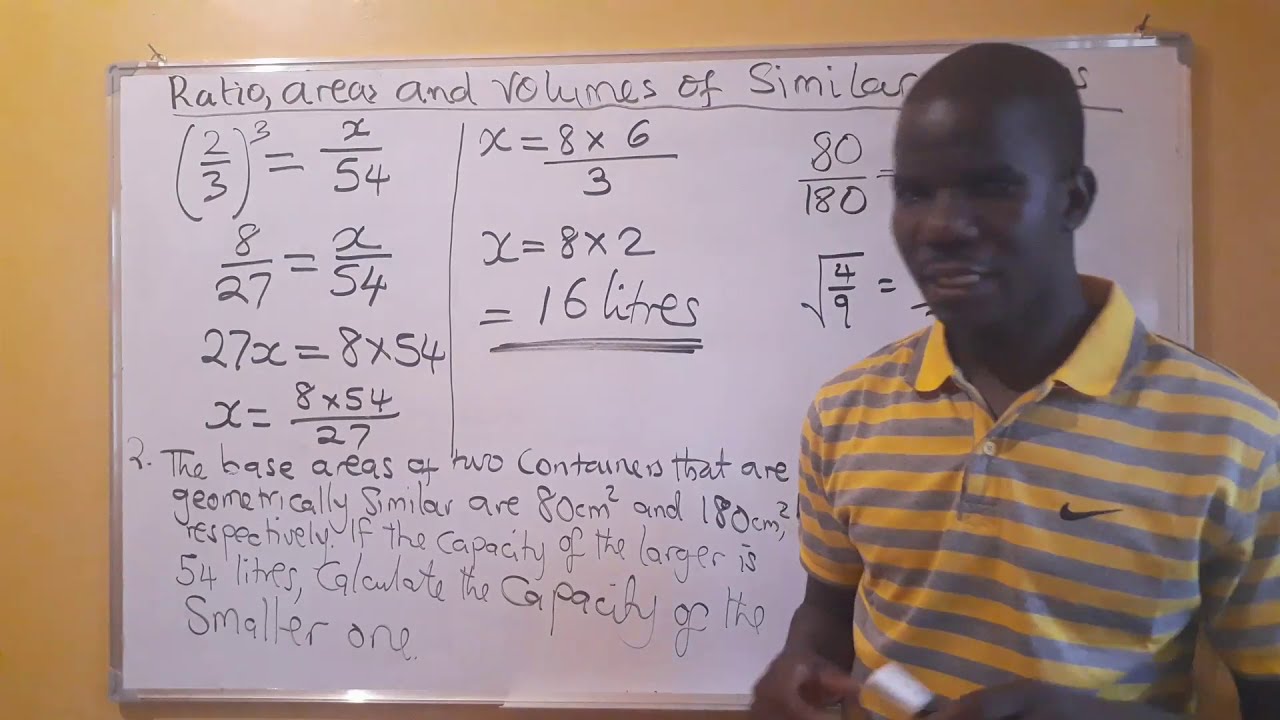 Ratio, areas and volumes of Similar
(2/3)³ = x/54
8/27 = x/54
27x = 8×54
x = 8×54/27
x = 8 × 6/3
x = 8×2
= 16 litres
80/180 =
√4/9 =
2. The base areas of two Containers that are
geometrically Similar are 80cm² and 180cm²,
respectively. If the capacity of the larger is
54 litres, Calculate the Capacity of the
Smaller one.